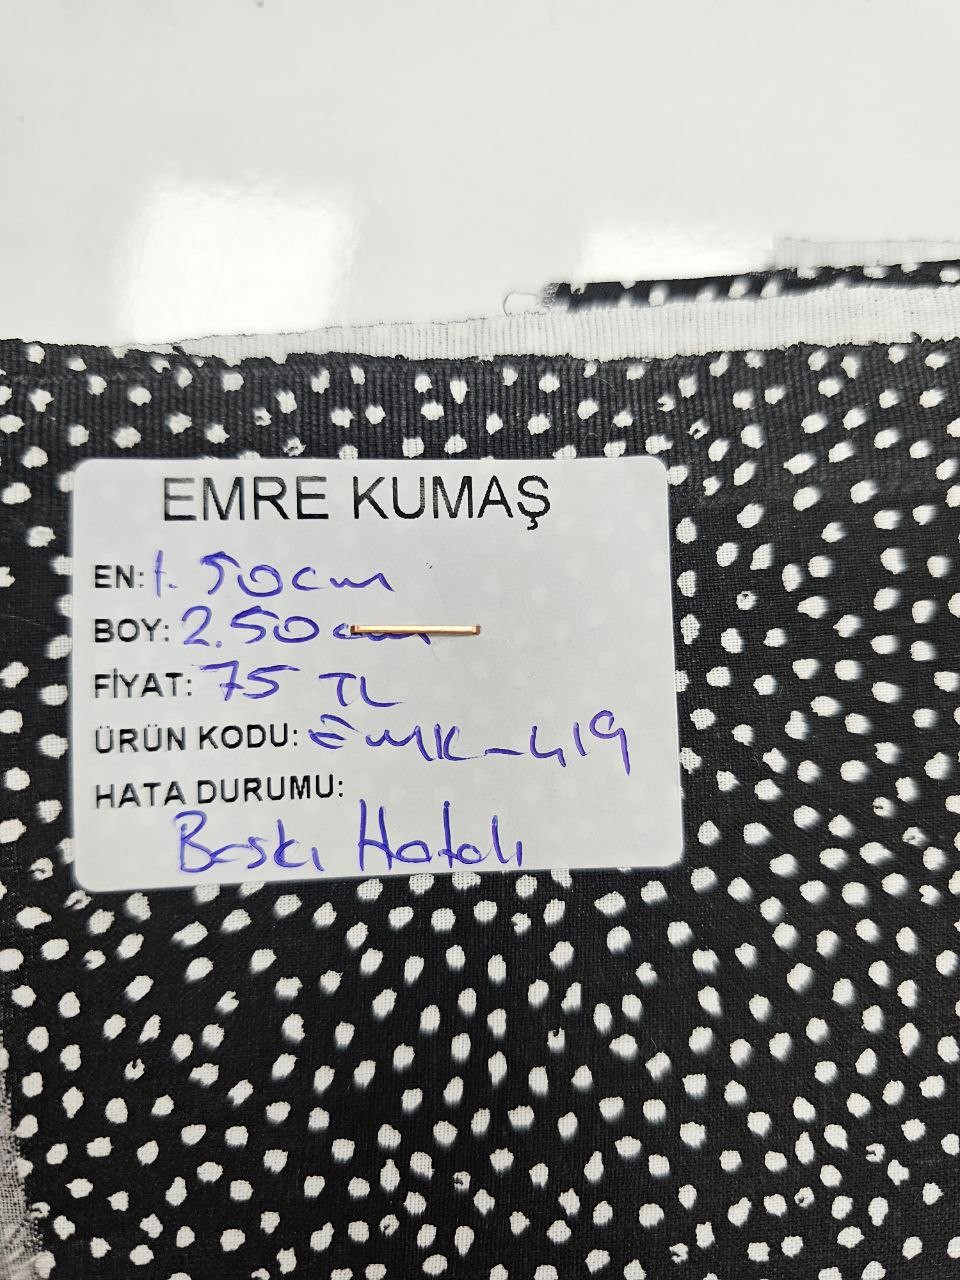 EMRE KUMAŞ
EN: 1.50cm
BOY: 2.50cm
FİYAT: 75 TL
ÜRÜN KODU: EMK-419
HATA DURUMU:
Baskı Hatalı